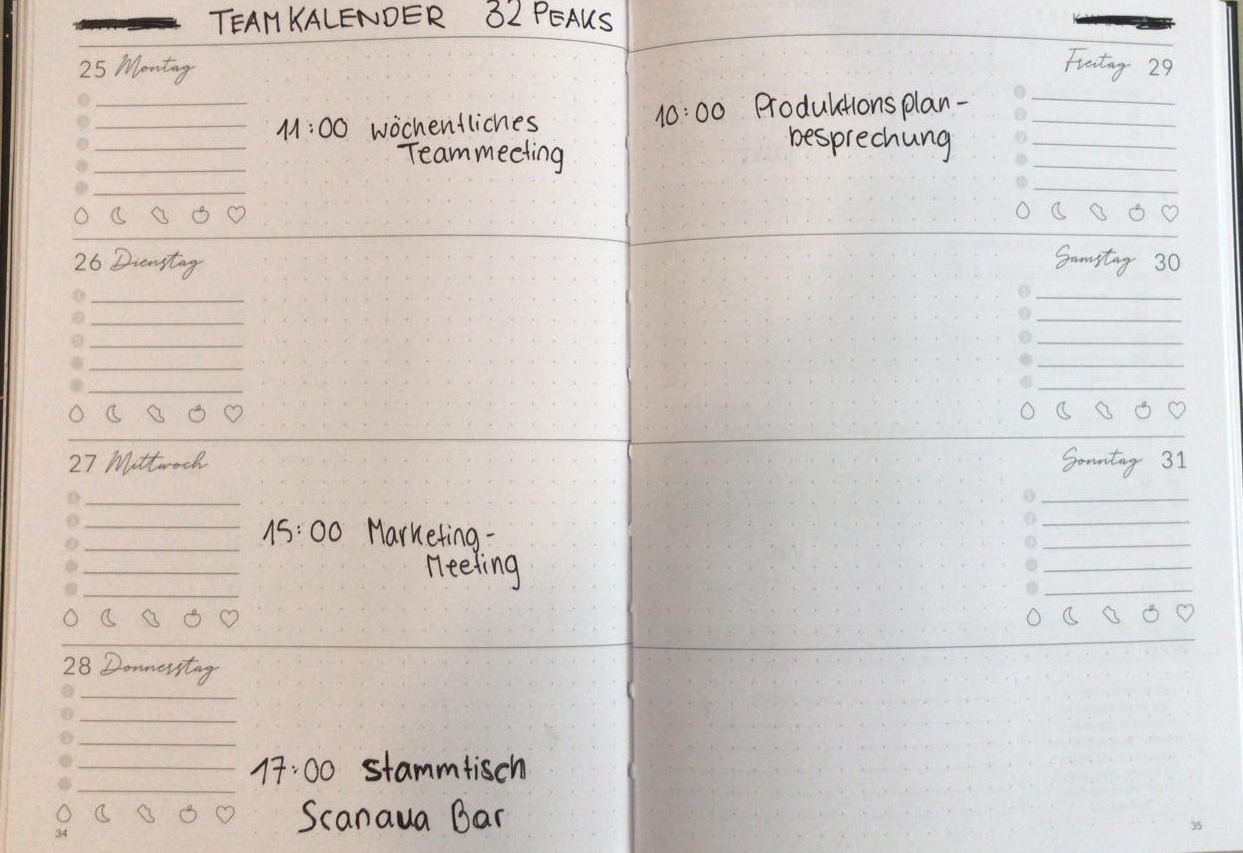 TEAMKALENDER 32 PEAKS
25 Montag
11:00 wöchentliches
Teammeeting
26 Dienstag
27 Mittwoch
15:00 Marketing-
Meeting
28 Donnerstag
17:00 Stammtisch
Scanaua Bar
34
Freitag 29
10:00 Produktionsplan-
besprechung
Samstag 30
Sonntag 31
35